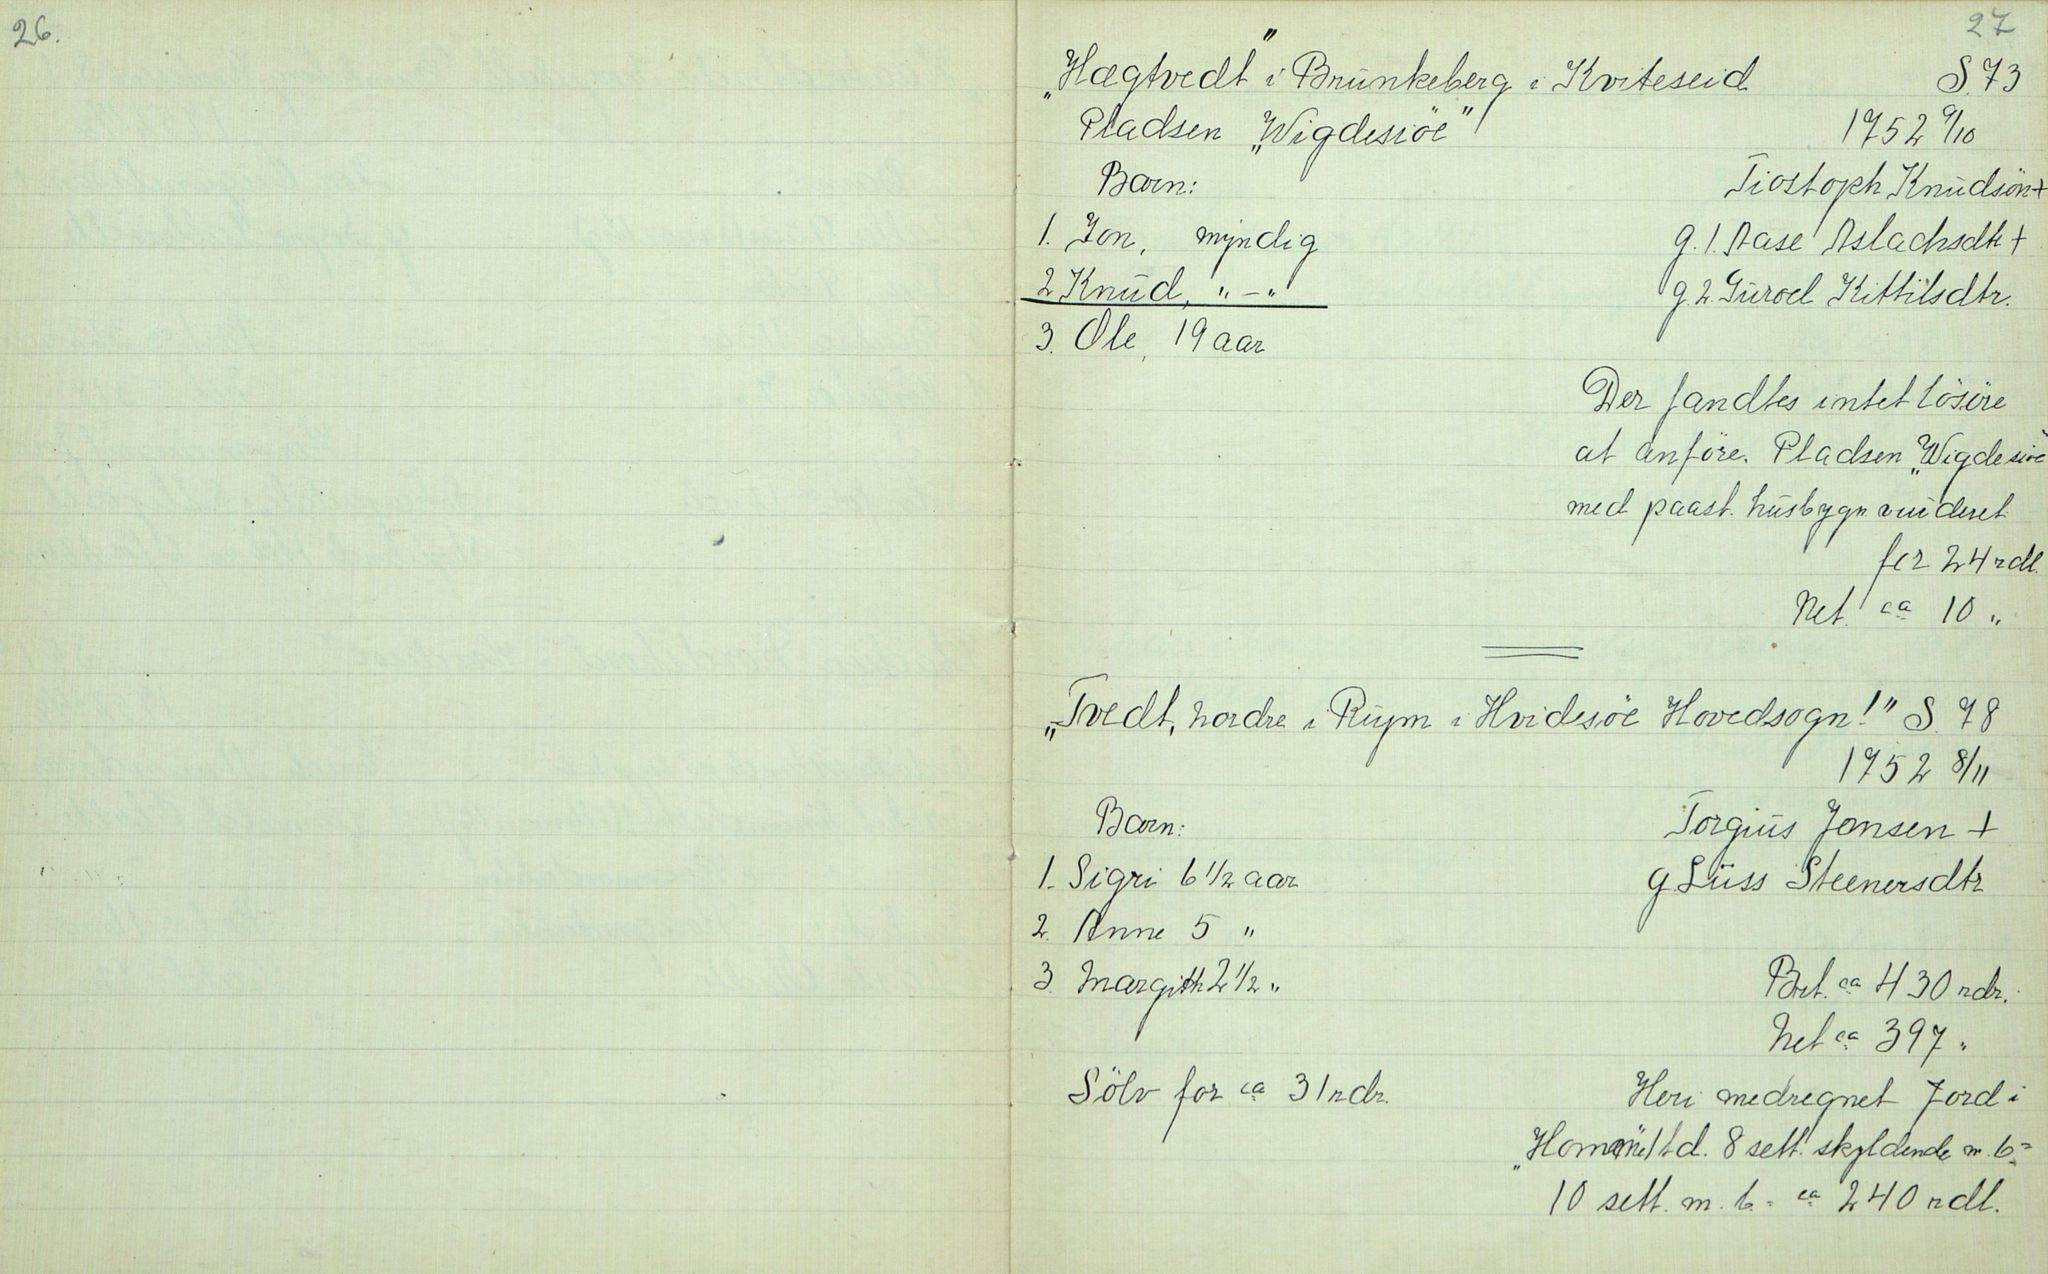 26.
27
„Hægtvedt" i Brunkeberg i Kviteseid S. 73
Pladsen „Wigdesiöe" 1752 9/10
Barn: Tiostoph Knudsön +
1. Jon, myndig g. 1. Aase Aslachsdtr +
2 Knud, "–" g. 2. Guroel Kittilsdtr.
3. Ole, 19 aar
Der fandtes intet lösöre
at anföre. Pladsen „Wigdesiöe"
med paast. husbygn vurderet
for 24 rdl.
Net. ca 10 "
„Tvedt, nordre i Rüym i Hvidesöe Hovedsogn!" S. 78
1752 8/11
Barn: Torgius Jonsen +
1. Sigri 6 1/2 aar g. Luss Steenersdtr
2. Anne 5 "
3. Margith 2 1/2 " Brt. ca 430 rdr.
Net ca 397 "
Sölv for ca 31 rdr. Heri medregnet Jord i
1 td. 8 sett. skyldende m. b.=
10 sett. m. b. = ca 240 rdl.